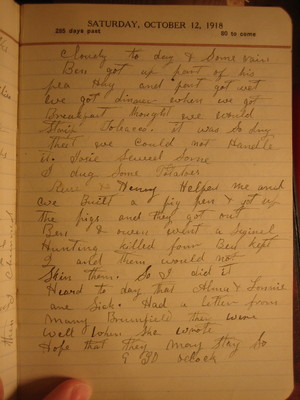 SATURDAY, OCTOBER 12, 1918
285 days past 80 to come
Cloudy to day & Some rain
Ben got up part of his
pea Hay and part got wet
We got dinner when we got
Breakfast thought we would
Strip Tobacco. it was So dry
that we could not Handle
it. Socie Sewed Some
I dug Some Tatoes
Henry Helped me and
we Built a pig pen & got up
the pigs and they got out
Ben & Owen went a Squirrel
Hunting Killed four Ben kept
and them would not
Skin them. So I did it
Heard to day that Alma & Lonnie
are Sick. Had a letter from
Brumfield they were
well when She wrote
Hope that they may Stay So
9 30 oclock